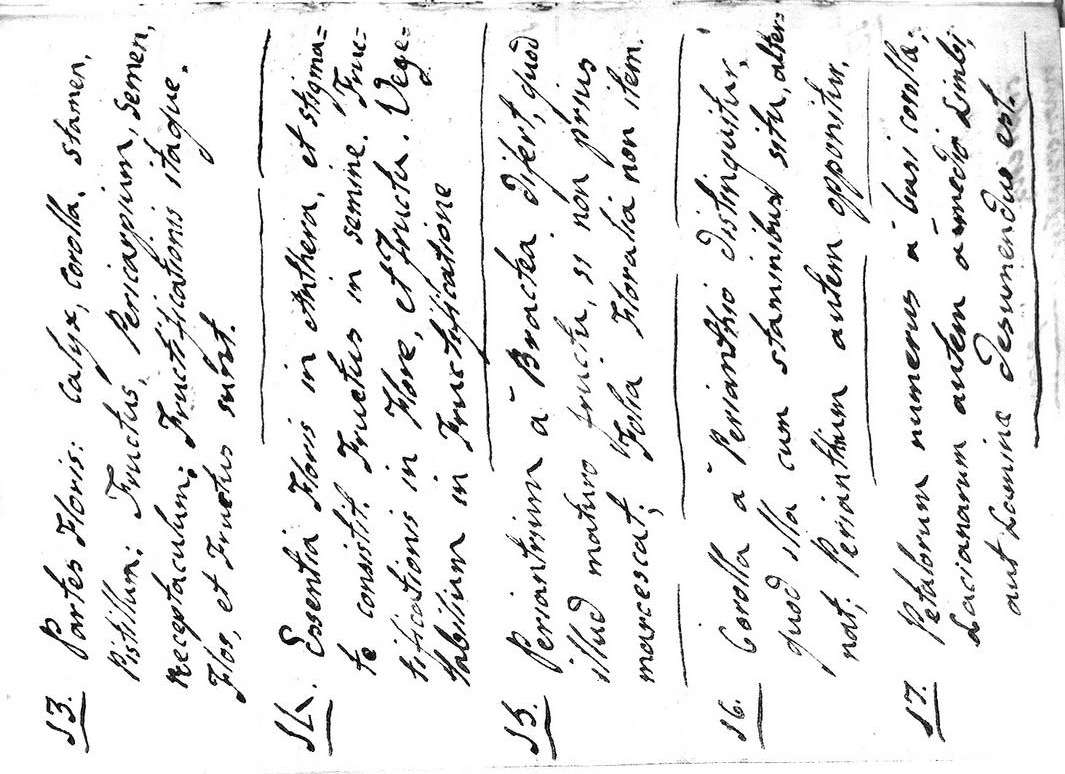 §3. Partes Floris: Calyx, Corolla, stamen,
Pistillum: Fructus, Pericarpium, semen,
receptaculum: Fructificationis itaque.
Flos, et Fructus sunt.
§4. Essentia Floris in Anthera, et stigma=
te consistit. Fructus in semine. Fruc=
tificationis in Flore, et Fructu. Vege=
tabilium in Fructificatione
§5. Periantrium à Bractea difert, quod
illud maturo fructu, si non prius
marcescat; Folia Floralia non item.
§6. Corolla à Perianthio distinguitur,
quod illa cum staminibus situ, alter=
nat; Perianthium autem opponitur.
§7. Petalorum numerus à basi corollæ;
Laciniarum autem à medio Limbi,
aut Lamina desumendus est.